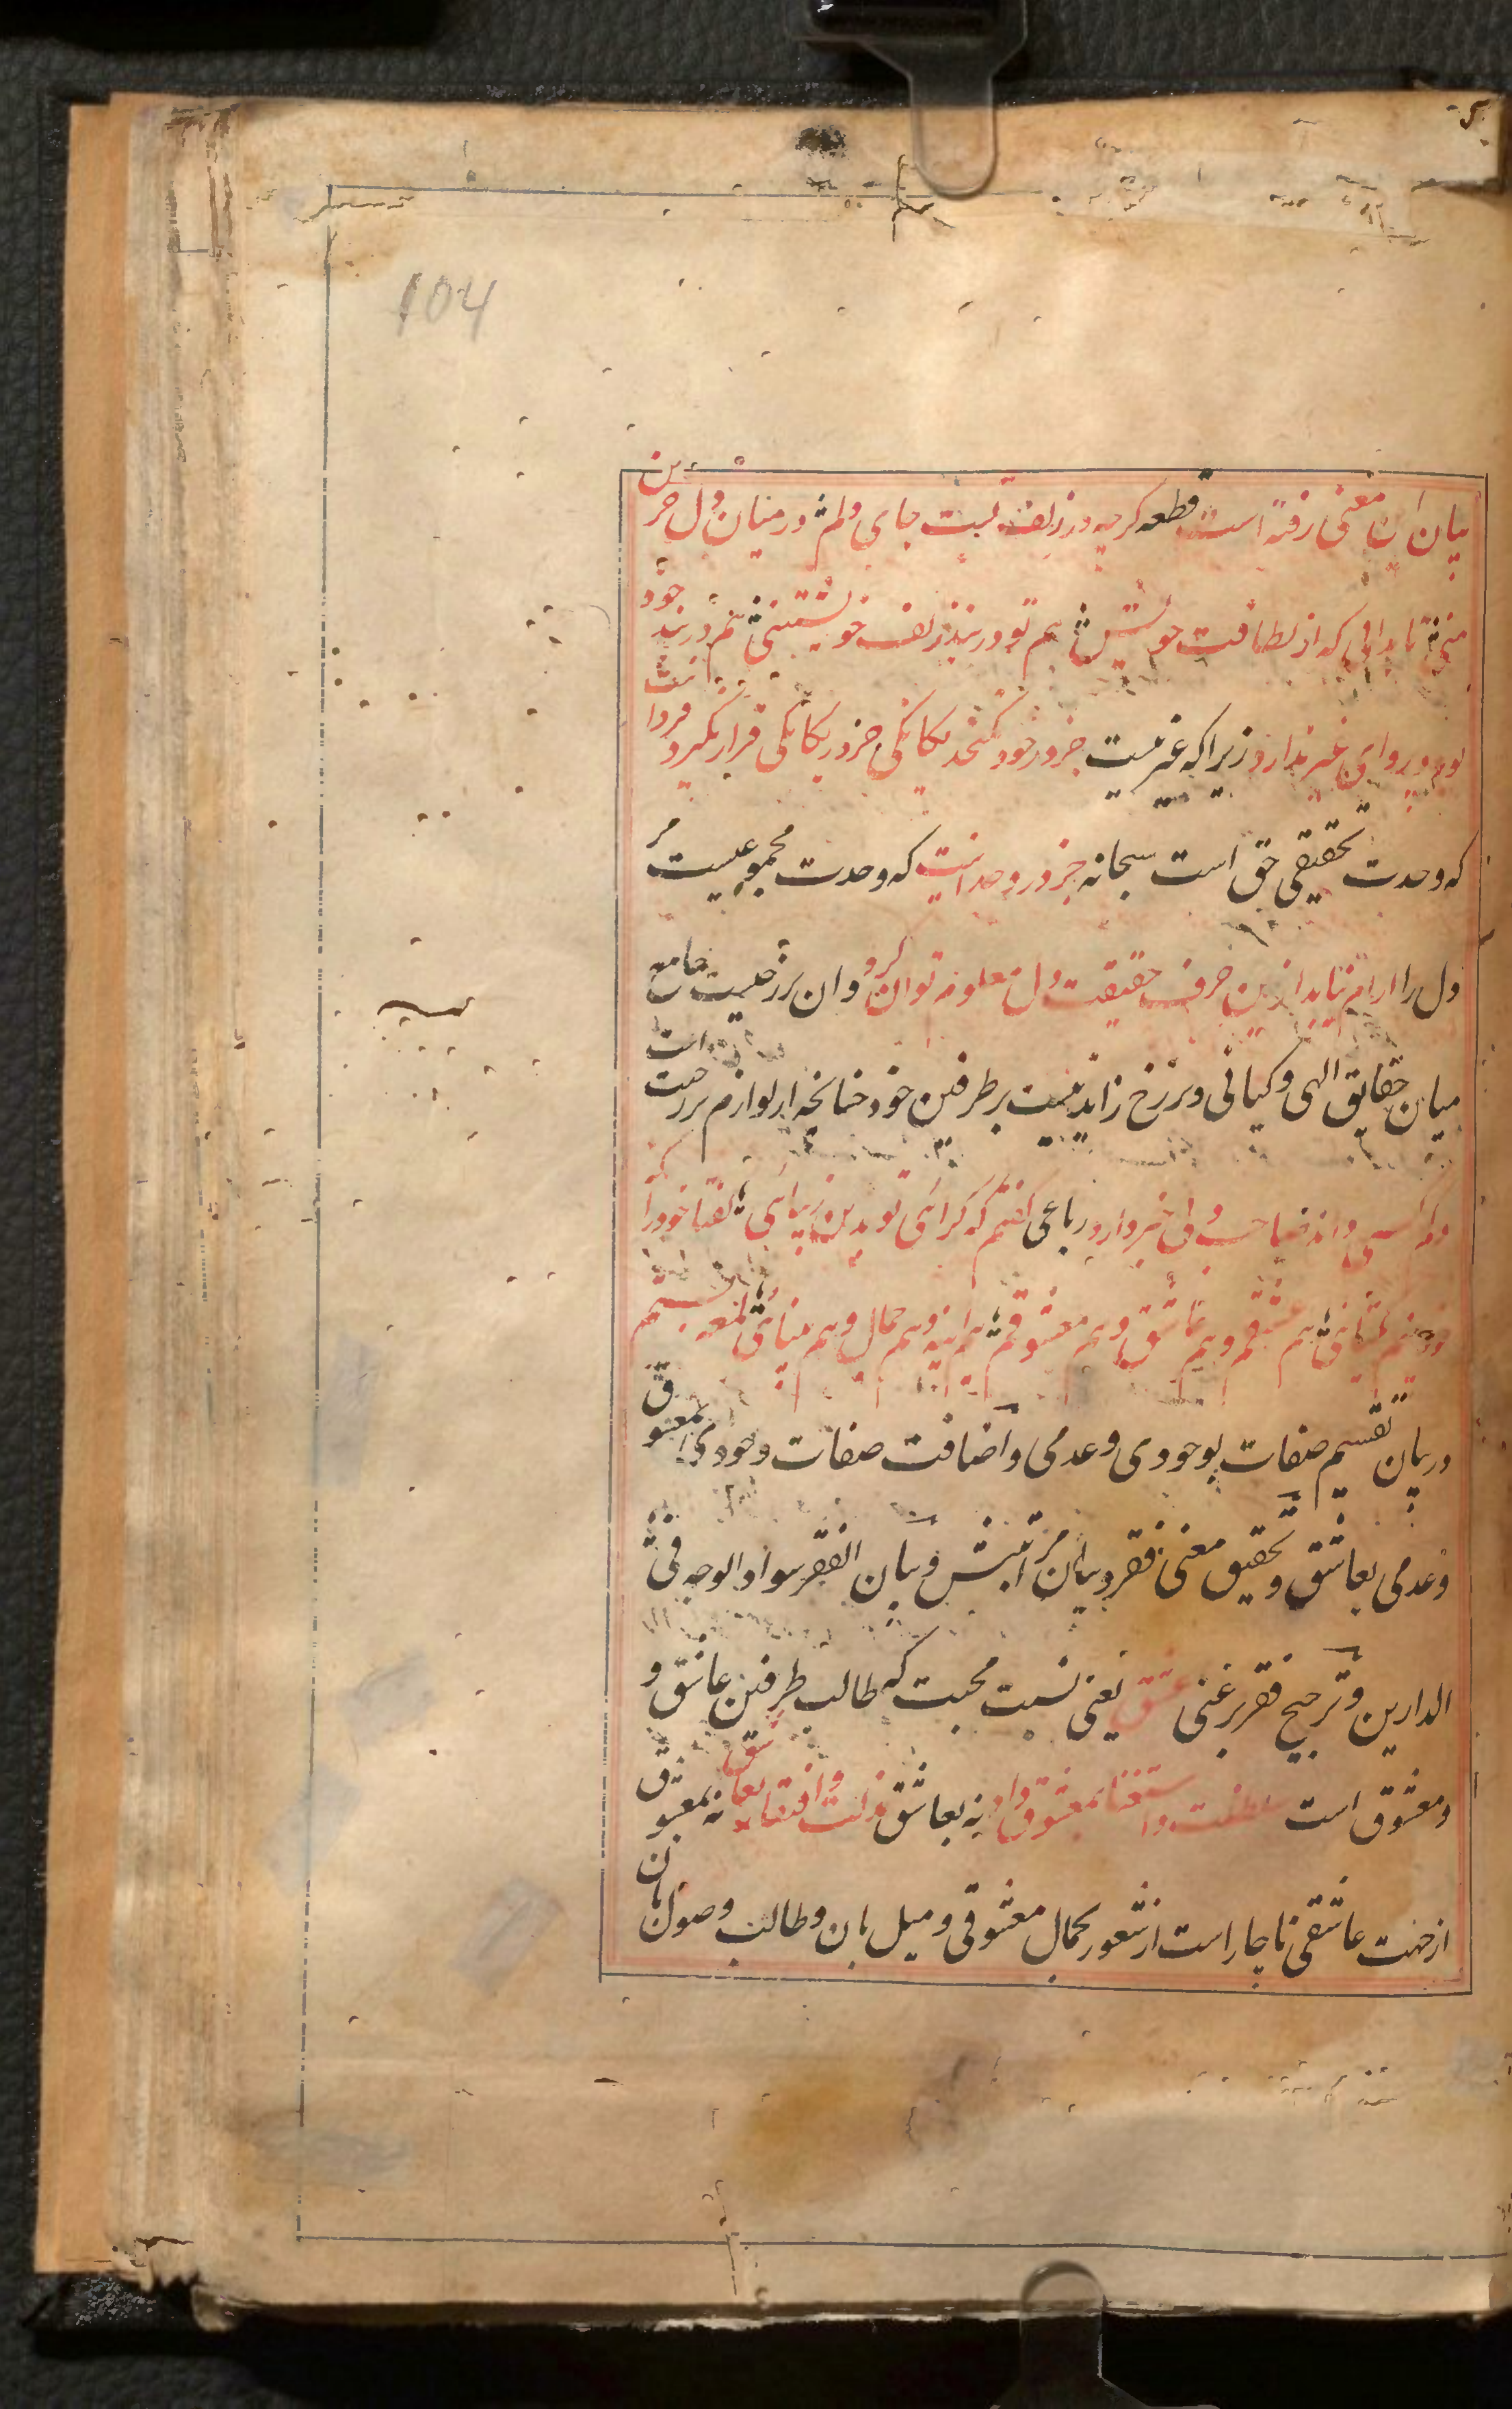 104
بیان این معنی رفته است قطعه گرچه در زلف تست جای دلم در میان دل حزین
منی تا بدانی که از لطافت خویش هم تو در بند زلف خویشتنی هم در بند خود
بود و پروای غیر ندارد زیرا که غیر نیست جز در خود نگنجد یگانگی جز در یگانگی قرار نگیرد فردانیت
که وحدت تحقیقی حق است سبحانه جز در وحدانیت که وحدت مجموعیست مر
دل را ارام نیابد ازین حرف حقیقت دل معلوم توان کرد و ان برزخیست جامع
میان حقایق الهی و کیانی و برزخ زاید نیست بر طرفین خود چنانچه از لوازم برزخیت است
رباعی گفتم که کرائی تو بدین زیبائی گفتا خود را که
خودم هم عشقم و هم عاشق و هم معشوقم هم اینه هم جمال و هم بینائی لمعه بیستم
در بیان تقسیم صفات بوجودی و عدمی و اضافت صفات وجودی بمعشوق
و عدمی بعاشق و تحقیق معنی فقر و بیان مراتبش و بیان الفقر سواد الوجه فی
الدارین و ترجیح فقر بر غنی عشق یعنی نسبت محبت که طالب طرفین عاشق و
و معشوق است سلطنت و استغنا بمعشوق داد نه بعاشق مذلت و افتقار بعاشق نه بمعشوق
از جهت عاشقی ناچار است از شعور بجمال معشوقی و میل بان و طالب وصول بان